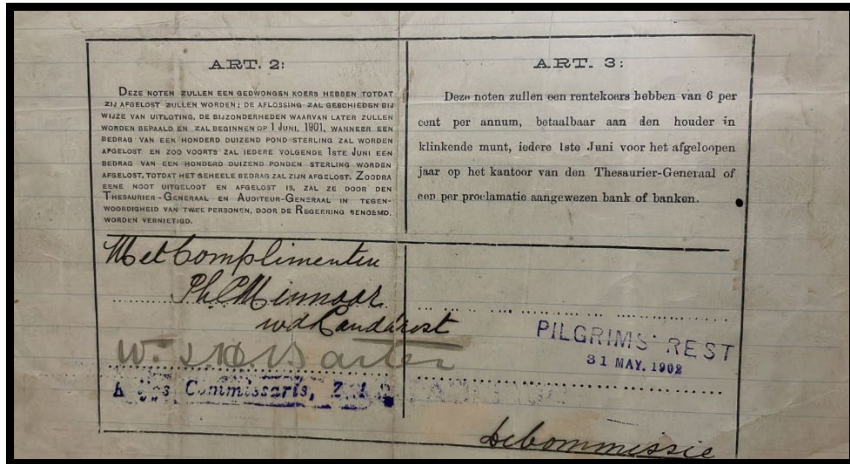 ART. 2:
DEZE NOTEN ZULLEN EEN GEDWONGEN KOERS HEBBEN TOTDAT
ZIJ AFGELOST ZULLEN WORDEN; DE AFLOSSING ZAL GESCHIEDEN BIJ
WIJZE VAN UITLOTING, DE BIJZONDERHEDEN WAARVAN LATER ZULLEN
WORDEN BEPAALD EN ZAL BEGINNEN OP 1 JUNI, 1901, WANNEER EEN
BEDRAG VAN EEN HONDERD DUIZEND POND STERLING ZAL WORDEN
AFGELOST EN ZOO VOORTS ZAL IEDERE VOLGENDE 1STE JUNI EEN
BEDRAG VAN EEN HONDERD DUIZEND PONDEN STERLING WORDEN
AFGELOST, TOTDAT HET GEHEELE BEDRAG ZAL ZIJN AFGELOST. ZOODRA
EENE NOOT UITGELOOT EN AFGELOST IS, ZAL ZE DOOR DEN
THESAURIER-GENERAAL EN AUDITEUR-GENERAAL IN TEGEN-
WOORDIGHEID VAN TWEE PERSONEN, DOOR DE REGEERING BENOEMD,
WORDEN VERNIETIGD.
ART. 3:
Deze noten zullen een rentekoers hebben van 6 per
cent per annum, betaalbaar aan den houder in
klinkende munt, iedere 1ste Juni voor het afgeloopen
jaar op het kantoor van den Thesaurier-Generaal of
een per proclamatie aangewezen bank of banken.
Met Complimenten
Ph C Minnaar
wd Landdrost
Commissaris, Z.A.R.
PILGRIMS' REST
31 MAY. 1902
de Commissie